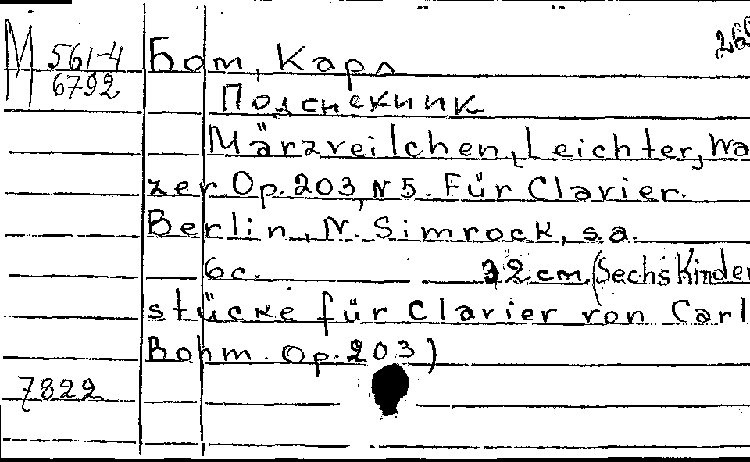 М 561-4 Бом, Карл 26
6792
Подснежник
Märzveilchen, Leichter, Wa
zer Op. 203, N5. Für Clavier.
Berlin, N. Simrock, s.a.
6 c. 32 cm. (Sechs Kinder
stücke für Clavier von Carl
Bohm. Op. 203)
7822